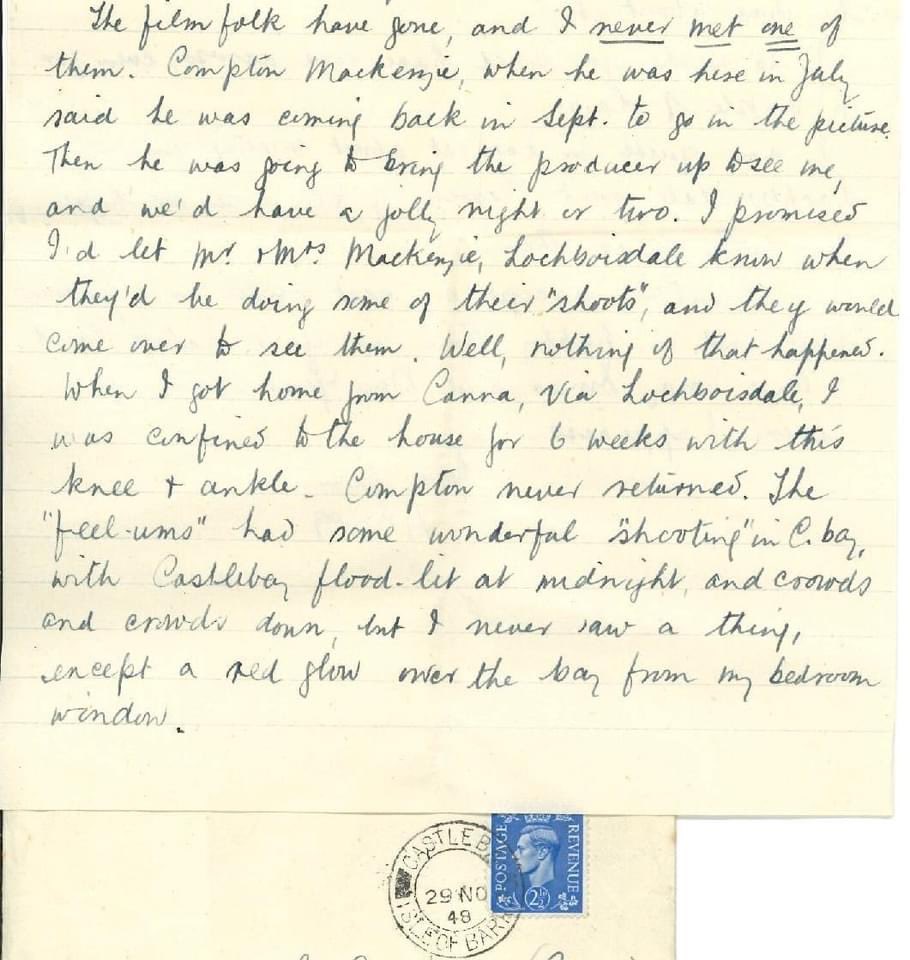 The film folk have gone, and I never met one of
them. Compton Mackenzie, when he was here in July
said he was coming back in Sept. to go in the picture.
Then he was going to bring the producer up to see me,
and we'd have a jolly night or two. I promised
I'd let Mr. & Mrs Mackenzie, Lochboisdale know when
they'd be doing some of their "shoots", and they would
come over to see them. Well, nothing of that happened.
When I got home from Canna, via Lochboisdale, I
was confined to the house for 6 weeks with this
knee & ankle. Compton never returned. The
"feel-ums" had some wonderful "shooting" in C. bay,
with Castlebay flood-lit at midnight, and crowds
and crowds down, but I never saw a thing,
except a red glow over the bay from my bedroom
window.
CASTLEB
29 NO
48
ISLE OF BARR
POSTAGE REVENUE
2½